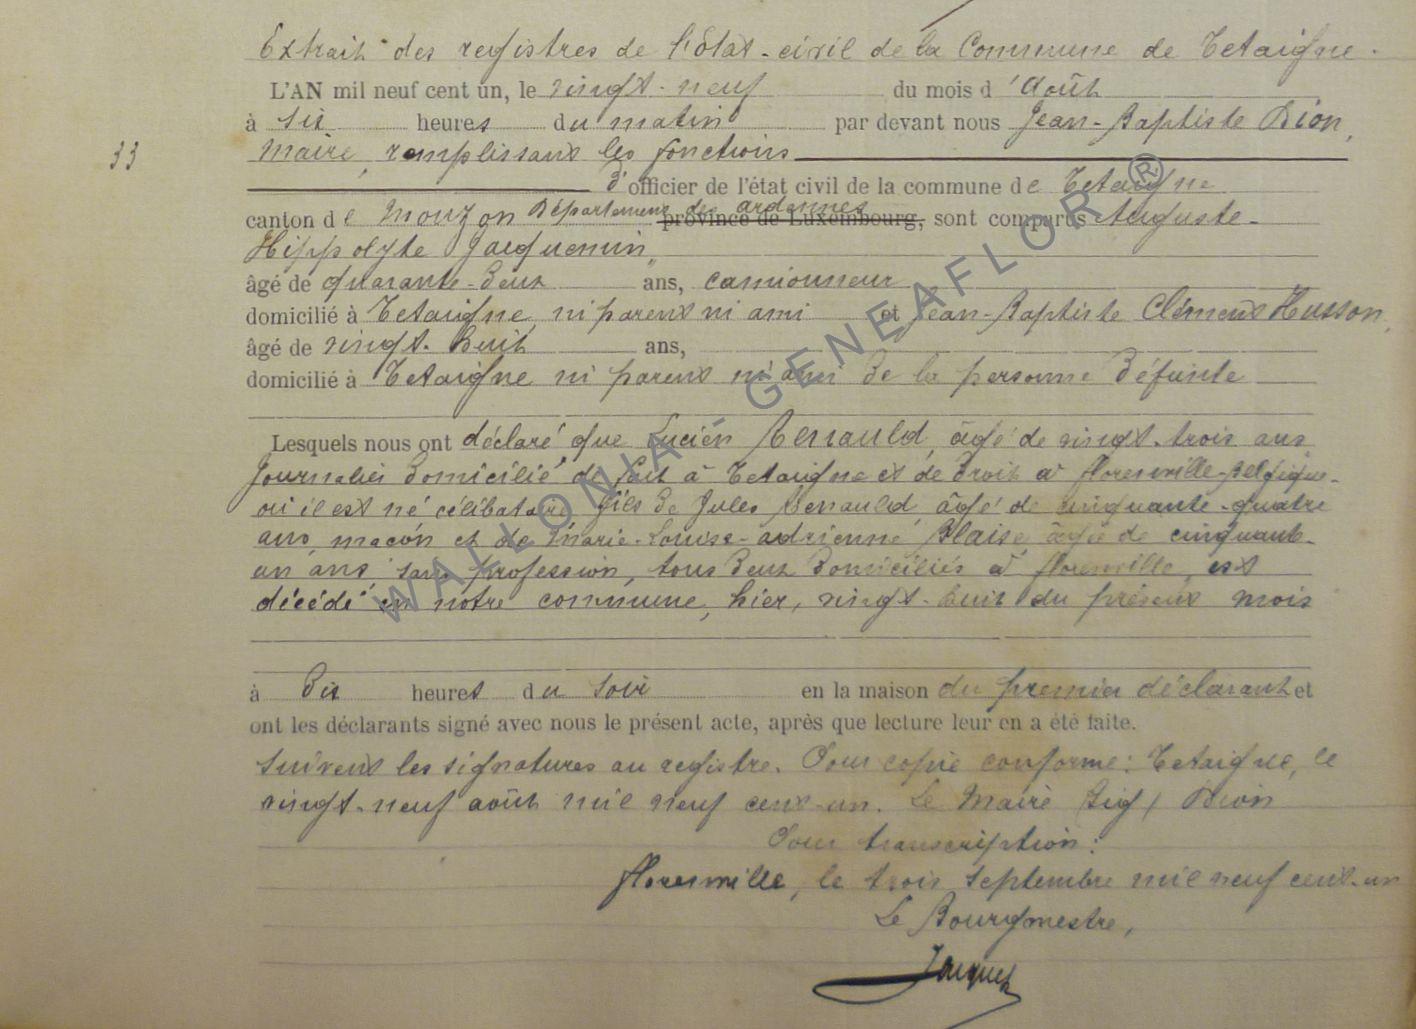 Extrait des registres de l'Etat-civil de la Commune de Tetaigne.
L'AN mil neuf cent un, le vingt-neuf du mois d'Août
à six heures du matin par devant nous Jean-Baptiste Dion,
33
Maire, remplissant les fonctions
d'officier de l'état civil de la commune de Tetaigne
canton de Mouzon Département des ardennes province de Luxembourg, sont comparus Auguste-
Hippolyte Jacquemin,
âgé de quarante-deux ans, camionneur
domicilié à Tetaigne, ni parent ni ami et Jean-Baptiste Clément Husson,
âgé de vingt-huit ans,
domicilié à Tetaigne ni parent ni ami de la personne défunte
Lesquels nous ont déclaré que Lucien Renauld, âgé de vingt-trois ans
Journalier domicilié de fait à Tetaigne et de droit à florenville-Belgique-
où il est né célibataire, fils de Jules Renauld, âgé de cinquante-quatre
ans, maçon et de Marie-Louise-adrienne Blaise, âgée de cinquante-
un ans, sans profession, tous deux domiciliés à florenville, est
décédé en notre commune, hier, vingt-huit du présent mois
à dix heures du soir en la maison du premier déclarant et
ont les déclarants signé avec nous le présent acte, après que lecture leur en a été faite.
Suivent les signatures au registre. Pour copie conforme: Tetaigne, le
vingt-neuf août mil neuf cent-un. Le Maire Sig/ Dion
Pour transcription:
florenville, le trois Septembre mil neuf cent-un
Le Bourgmestre,
Jacquet
WALLONIA - GENEAFLOR ®